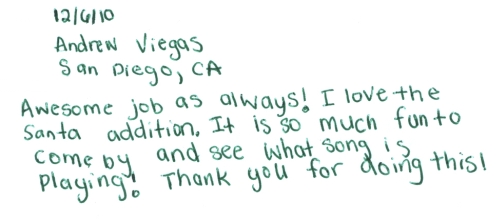 12/6/10
Andrew Viegas
San Diego, CA
Awesome job as always! I love the
Santa addition. It is so much fun to
come by and see what song is
playing! Thank you for doing this!